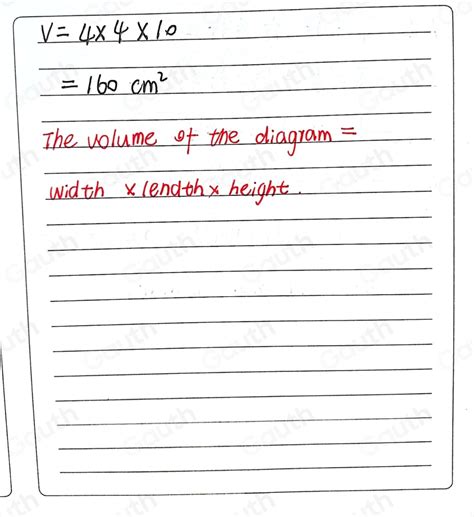 V = 4 x 4 x 10
= 160 cm²
The volume of the diagram =
width x lendth x height.